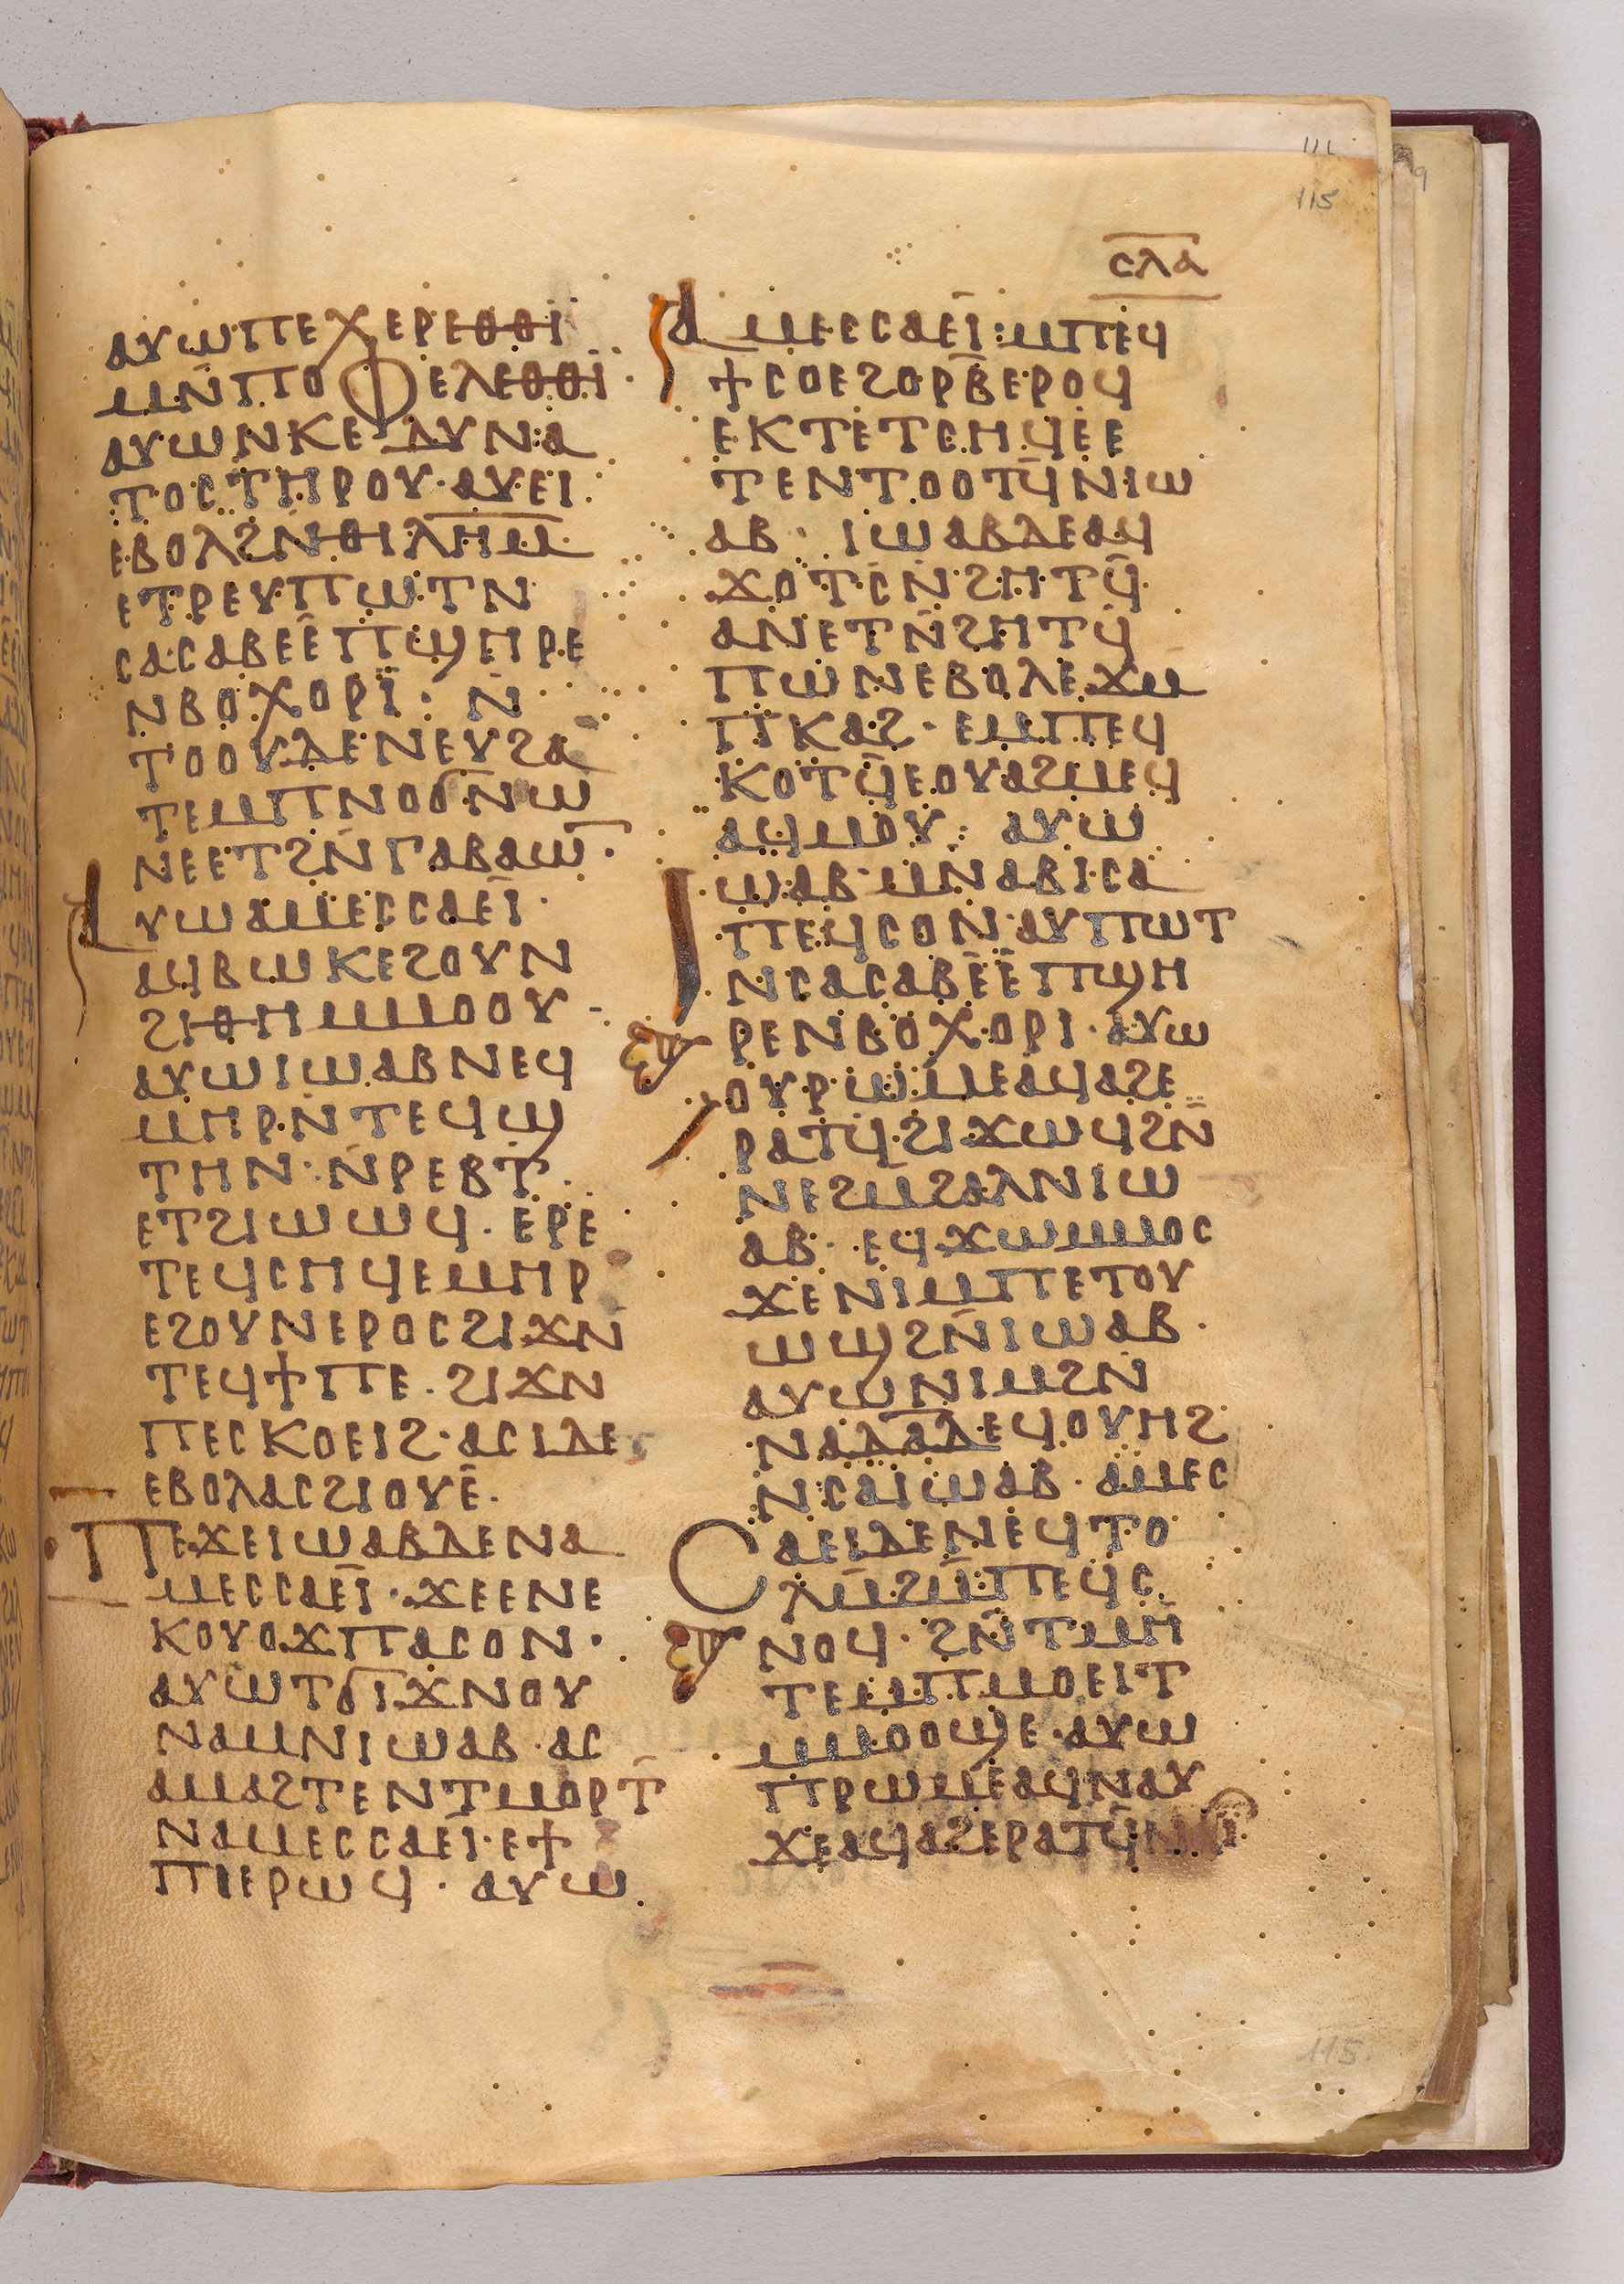 111
115
ⲥⲗⲁ
ⲁⲩⲱⲡⲉⲭⲉⲣⲉⲑⲑⲓ
ⲙⲛ̄ⲡⲟⲫⲉⲗⲉⲑⲑⲓ·
ⲁⲩⲱⲛⲕⲉⲇⲩⲛⲁ
ⲧⲟⲥⲧⲏⲣⲟⲩ·ⲁⲩⲉⲓ
ⲉⲃⲟⲗϩⲛ̄ⲑⲓⲗⲏⲙ
ⲉⲧⲣⲉⲩⲡⲱⲧⲛ
ⲥⲁⲥⲁⲃⲉⲉ̄ⲡϣⲏⲣⲉ
ⲛⲃⲟⲭⲟⲣⲓ̈· ⲛ̄
ⲧⲟⲟⲩⲇⲉⲛⲉⲩϩⲁ
ⲧⲉⲙⲡⲛⲟϭⲛ̄ⲱ
ⲛⲉⲉⲧϩⲛ̄ⲅⲁⲃⲁⲱ̄·
ⲁⲩⲱⲁⲙⲉⲥⲥⲁⲉⲓ̄·
ⲁϥⲃⲱⲕⲉϩⲟⲩⲛ
ϩⲓⲑⲏⲙⲙⲟⲟⲩ·
ⲁⲩⲱⲓⲱⲁⲃⲛⲉϥ
ⲙⲏⲣⲛ̄ⲧⲉϥϣ
ⲧⲏⲛ·ⲛ̄ⲣⲉⲃⲧ·
ⲉⲧϩⲓⲱⲱϥ·ⲉⲣⲉ
ⲧⲉϥⲥⲏϥⲉⲙⲏⲣ
ⲉϩⲟⲩⲛⲉⲣⲟⲥϩⲓϫⲛ̄
ⲧⲉϥϯⲡⲉ·ϩⲓϫⲛ
ⲡⲉⲥⲕⲟⲉⲓϩ·ⲁⲥⲓⲇⲉ
ⲉⲃⲟⲗⲁⲥϩⲓⲟⲩⲉ̄·
ⲡⲉϫⲉⲓⲱⲁⲃⲇⲉⲛⲁ
ⲙⲉⲥⲥⲁⲉⲓ̄·ϫⲉⲉⲛⲉ
ⲕⲟⲩⲟϫⲡⲁⲥⲟⲛ·
ⲁⲩⲱⲧϭⲓϫⲛⲟⲩ
ⲛⲁⲙⲛⲓⲱⲁⲃ·ⲁⲥ
ⲁⲙⲁϩⲧⲉⲛⲧⲙⲟⲣⲧ̄
ⲛⲁⲙⲉⲥⲥⲁⲉⲓ̄·ⲉϯ
ⲡⲓⲉⲣⲱϥ· ⲁⲩⲱ
ⲁⲙⲉⲉⲥⲁⲉⲓ̄:ⲙⲡⲉϥ
ϯⲥⲟⲉϩⲟⲣⲃ̄ⲉⲣⲟϥ
ⲉⲕⲧⲉⲧⲥⲏϥⲉⲉ
ⲧⲉⲛⲧⲟⲟⲧϥ̄ⲛⲓⲱ
ⲁⲃ· ⲓⲱⲁⲃⲇⲉⲁϥ
ϫⲟⲧⲥⲛ̄ϩⲏⲧϥ̄
ⲁⲛⲉⲧⲛ̄ϩⲏⲧϥ̄
ⲡⲱⲛⲉⲃⲟⲗⲉϫⲙ̄
ⲡⲕⲁϩ·ⲉⲙⲡⲉϥ
ⲕⲟⲧϥ̄ⲉⲟⲩⲁϩⲙⲉϥ
ⲁϥⲙⲟⲩ: ⲁⲩⲱ
ⲓⲱⲁⲃ·ⲙⲛ̄ⲁⲃⲓⲥⲁ
ⲡⲉϥⲥⲟⲛ·ⲁⲩⲡⲱⲧ
ⲛⲥⲁⲥⲁⲃⲉ̄ⲉ̄ⲡϣⲏ
ⲣⲉⲛⲃⲟⲭⲟⲣⲓ·ⲁⲩⲱ
ⲟⲩⲣⲱⲙⲉⲁϥⲁϩⲉ
ⲣⲁⲧϥ·ϩⲓϫⲱϥϩⲛ̄
ⲛⲉϩⲙϩⲁⲗⲛⲓⲱ
ⲁⲃ· ⲉϥϫⲱⲙⲙⲟⲥ
ϫⲉⲛⲓⲙⲡⲉⲧⲟⲩ
ⲱϣϩⲛ̄ⲓⲱⲁⲃ·
ⲁⲩⲱⲛⲓⲙϩⲛ
ⲛⲁⲇⲁⲇⲉϥⲟⲩⲏϩ
ⲛⲥⲁⲓⲱⲁⲃ·ⲁⲙⲉⲥ
ⲥⲁⲉⲓⲇⲉⲛⲉϥⲧⲟ
ⲗⲙ̄ϩⲙ̄ⲡⲉϥⲥ
ⲛⲟϥ·ϩⲛ̄ⲧⲙⲏ
ⲧⲉⲙⲡⲙⲟⲉⲓⲧ
ⲙⲙⲟⲟϣⲉ·ⲁⲩⲱ
ⲡⲣⲱⲙⲉⲁϥⲛⲁⲩ
ϫⲉⲁϥⲁϩⲉⲣⲁⲧϥ̄ⲛ
115